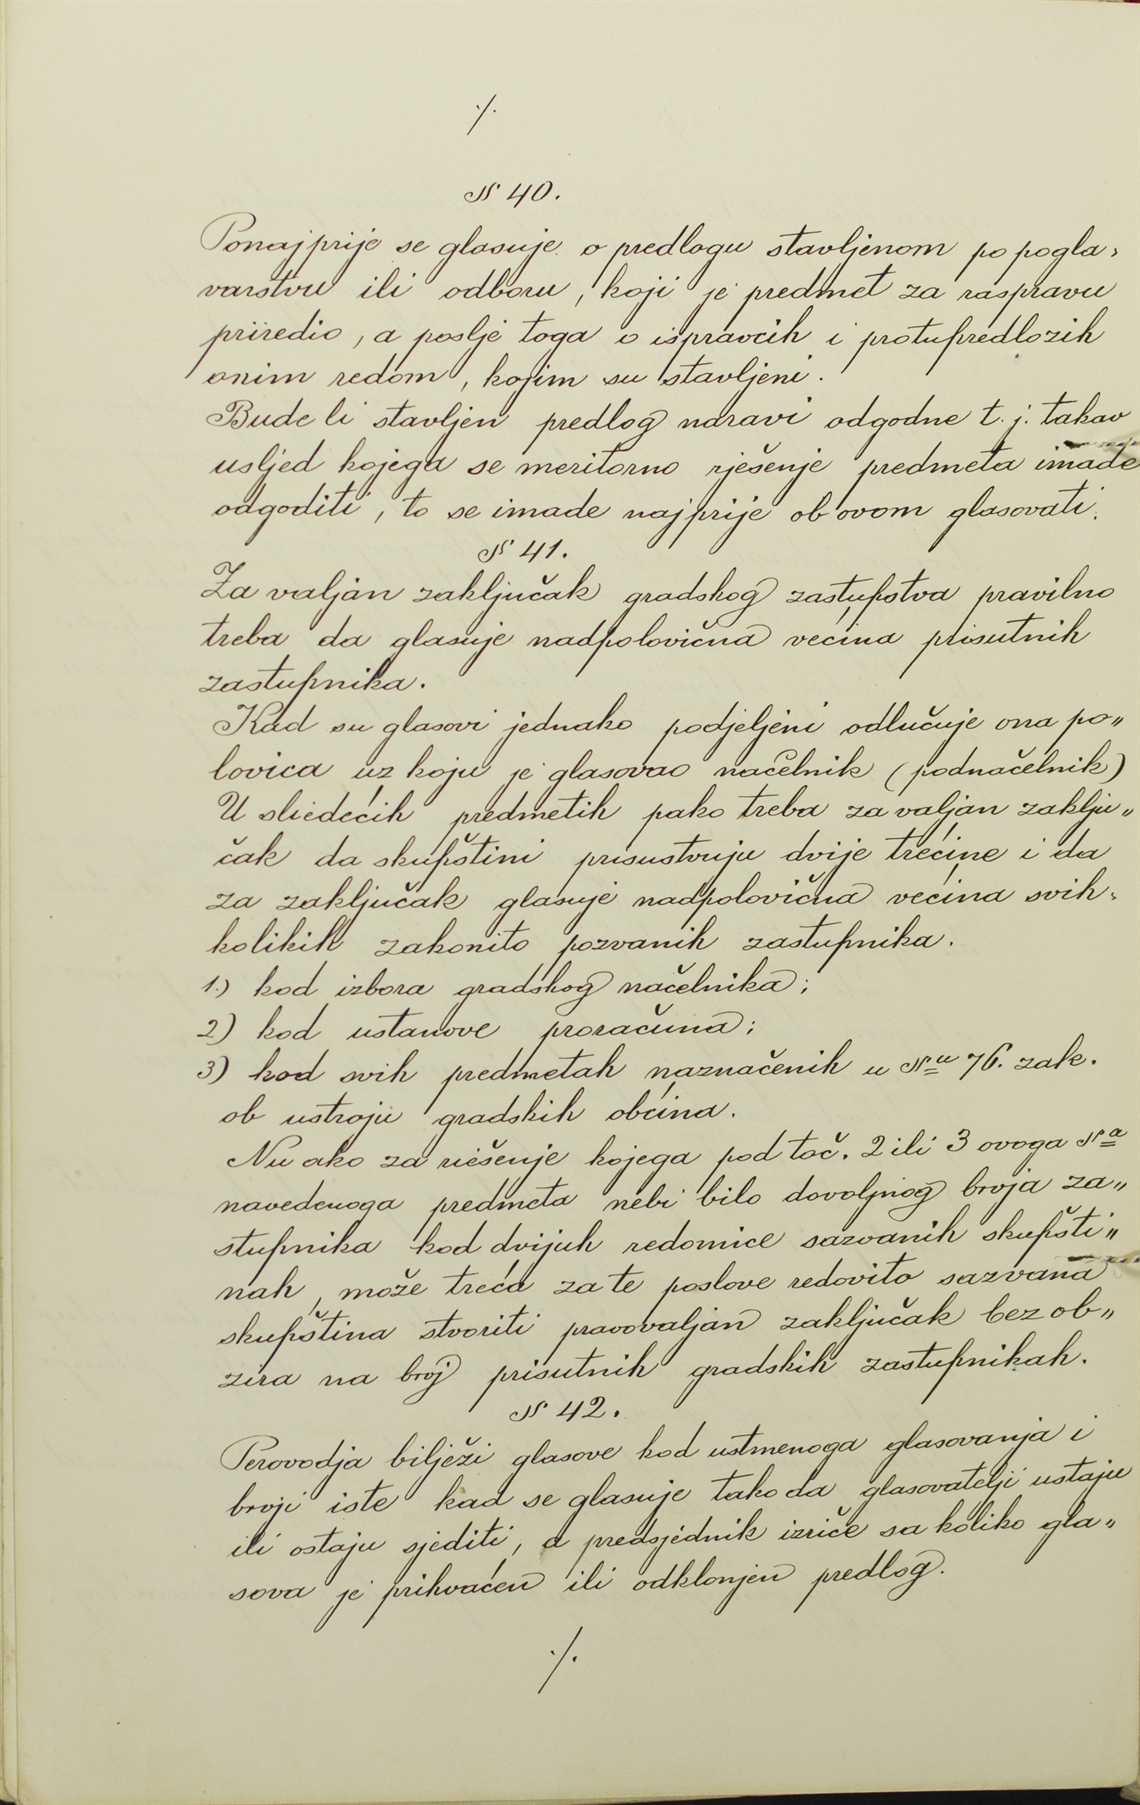 ./.
§ 40.
Ponajprije se glasuje o predlogu stavljenom po pogla„
varstvu ili odboru, koji je predmet za raspravu
priredio, a poslje toga o ispravcih i protupredlozih
onim redom, kojim su stavljeni.
Bude li stavljen predlog naravi odgodne t. j. takav
usljed kojega se meritorno rješenje predmeta imade
odgoditi, to se imade najprije ob ovom glasovati.
§ 41.
Za valjan zaključak gradskog zastupstva pravilno
treba da glasuje nadpolovična većina prisutnih
zastupnika.
Kad su glasovi jednako podjeljeni odlučuje ona po„
lovica uz koju je glasovao načelnik (podnačelnik)
U sliedećih predmetih pako treba za valjan zaklju„
čak da skupštini prisustvuju dvije trećine i da
za zaključak glasuje nadpolovična većina svih„
kolikih zakonito pozvanih zastupnika.
1.) kod izbora gradskog načelnika;
2) kod ustanove proračuna;
3) kod svih predmetah naznačenih u §u 76. zak.
ob ustroju gradskih občina.
Nu ako za riešenje kojega pod toč. 2 ili 3 ovoga §a
navedenoga predmeta nebi bilo dovoljnog broja za„
stupnika kod dvijuh redomice sazvanih skupšti„
nah, može treća za te poslove redovito sazvana
skupština stvoriti pravovaljan zaključak bez ob„
zira na broj prisutnih gradskih zastupnikah.
§ 42.
Perovodja bilježi glasove kod ustmenoga glasovanja i
broji iste kad se glasuje tako da glasovatelji ustaju
ili ostaju sjediti, a predsjednik izriče sa koliko gla„
sova je prihvaćen ili odklonjen predlog.
./.